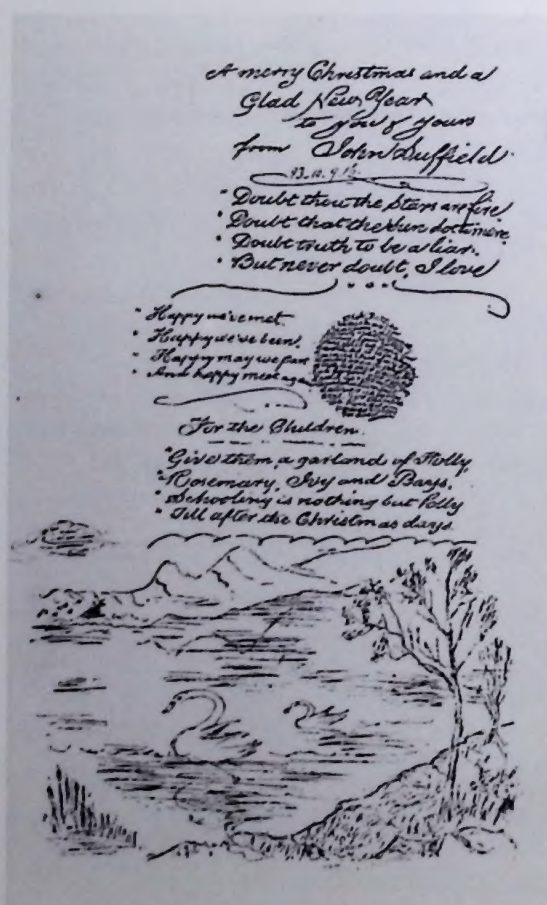 A merry Christmas and a
Glad New Year
to you & yours
from John Suffield.
"Doubt thou the Stars are fire
" Doubt that the Sun doth move,
" Doubt truth to be a liar.
" But never doubt, I love
" Happy we've met.
" Happy we've been,
" Happy may we part
" And happy meet again
For the Children.
"Give them a garland of Holly,
"Rosemary, Ivy and Bays.
" Schooling is nothing but Folly
" Till after the Christmas days